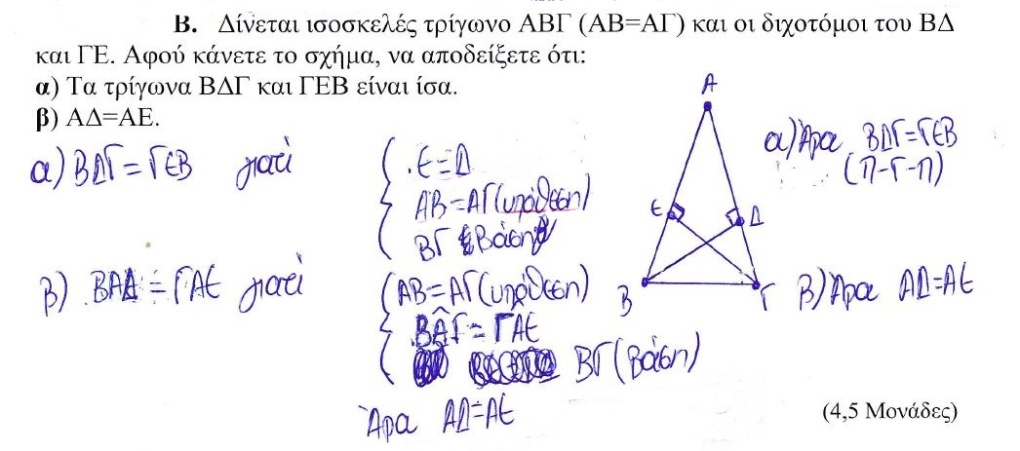 Β. Δίνεται ισοσκελές τρίγωνο ΑΒΓ (ΑΒ=ΑΓ) και οι διχοτόμοι του ΒΔ
και ΓΕ. Αφού κάνετε το σχήμα, να αποδείξετε ότι:
α) Τα τρίγωνα ΒΔΓ και ΓΕΒ είναι ίσα.
β) ΑΔ=ΑΕ.
α) ΒΔΓ = ΓΕΒ γιατί
. Ε=Δ
ΑΒ=ΑΓ (υπόθεση)
ΒΓ Βάση
Α
Ε
Δ
Β
Γ
α) Άρα ΒΔΓ=ΓΕΒ
(Π-Γ-Π)
β) ΒΑΔ = ΓΑΕ γιατί
ΑΒ=ΑΓ (υπόθεση)
ΒΑ̂Γ = ΓΑΕ
ΒΓ (Βάση)
Άρα ΑΔ=ΑΕ
β) Άρα ΑΔ=ΑΕ
(4,5 Μονάδες)